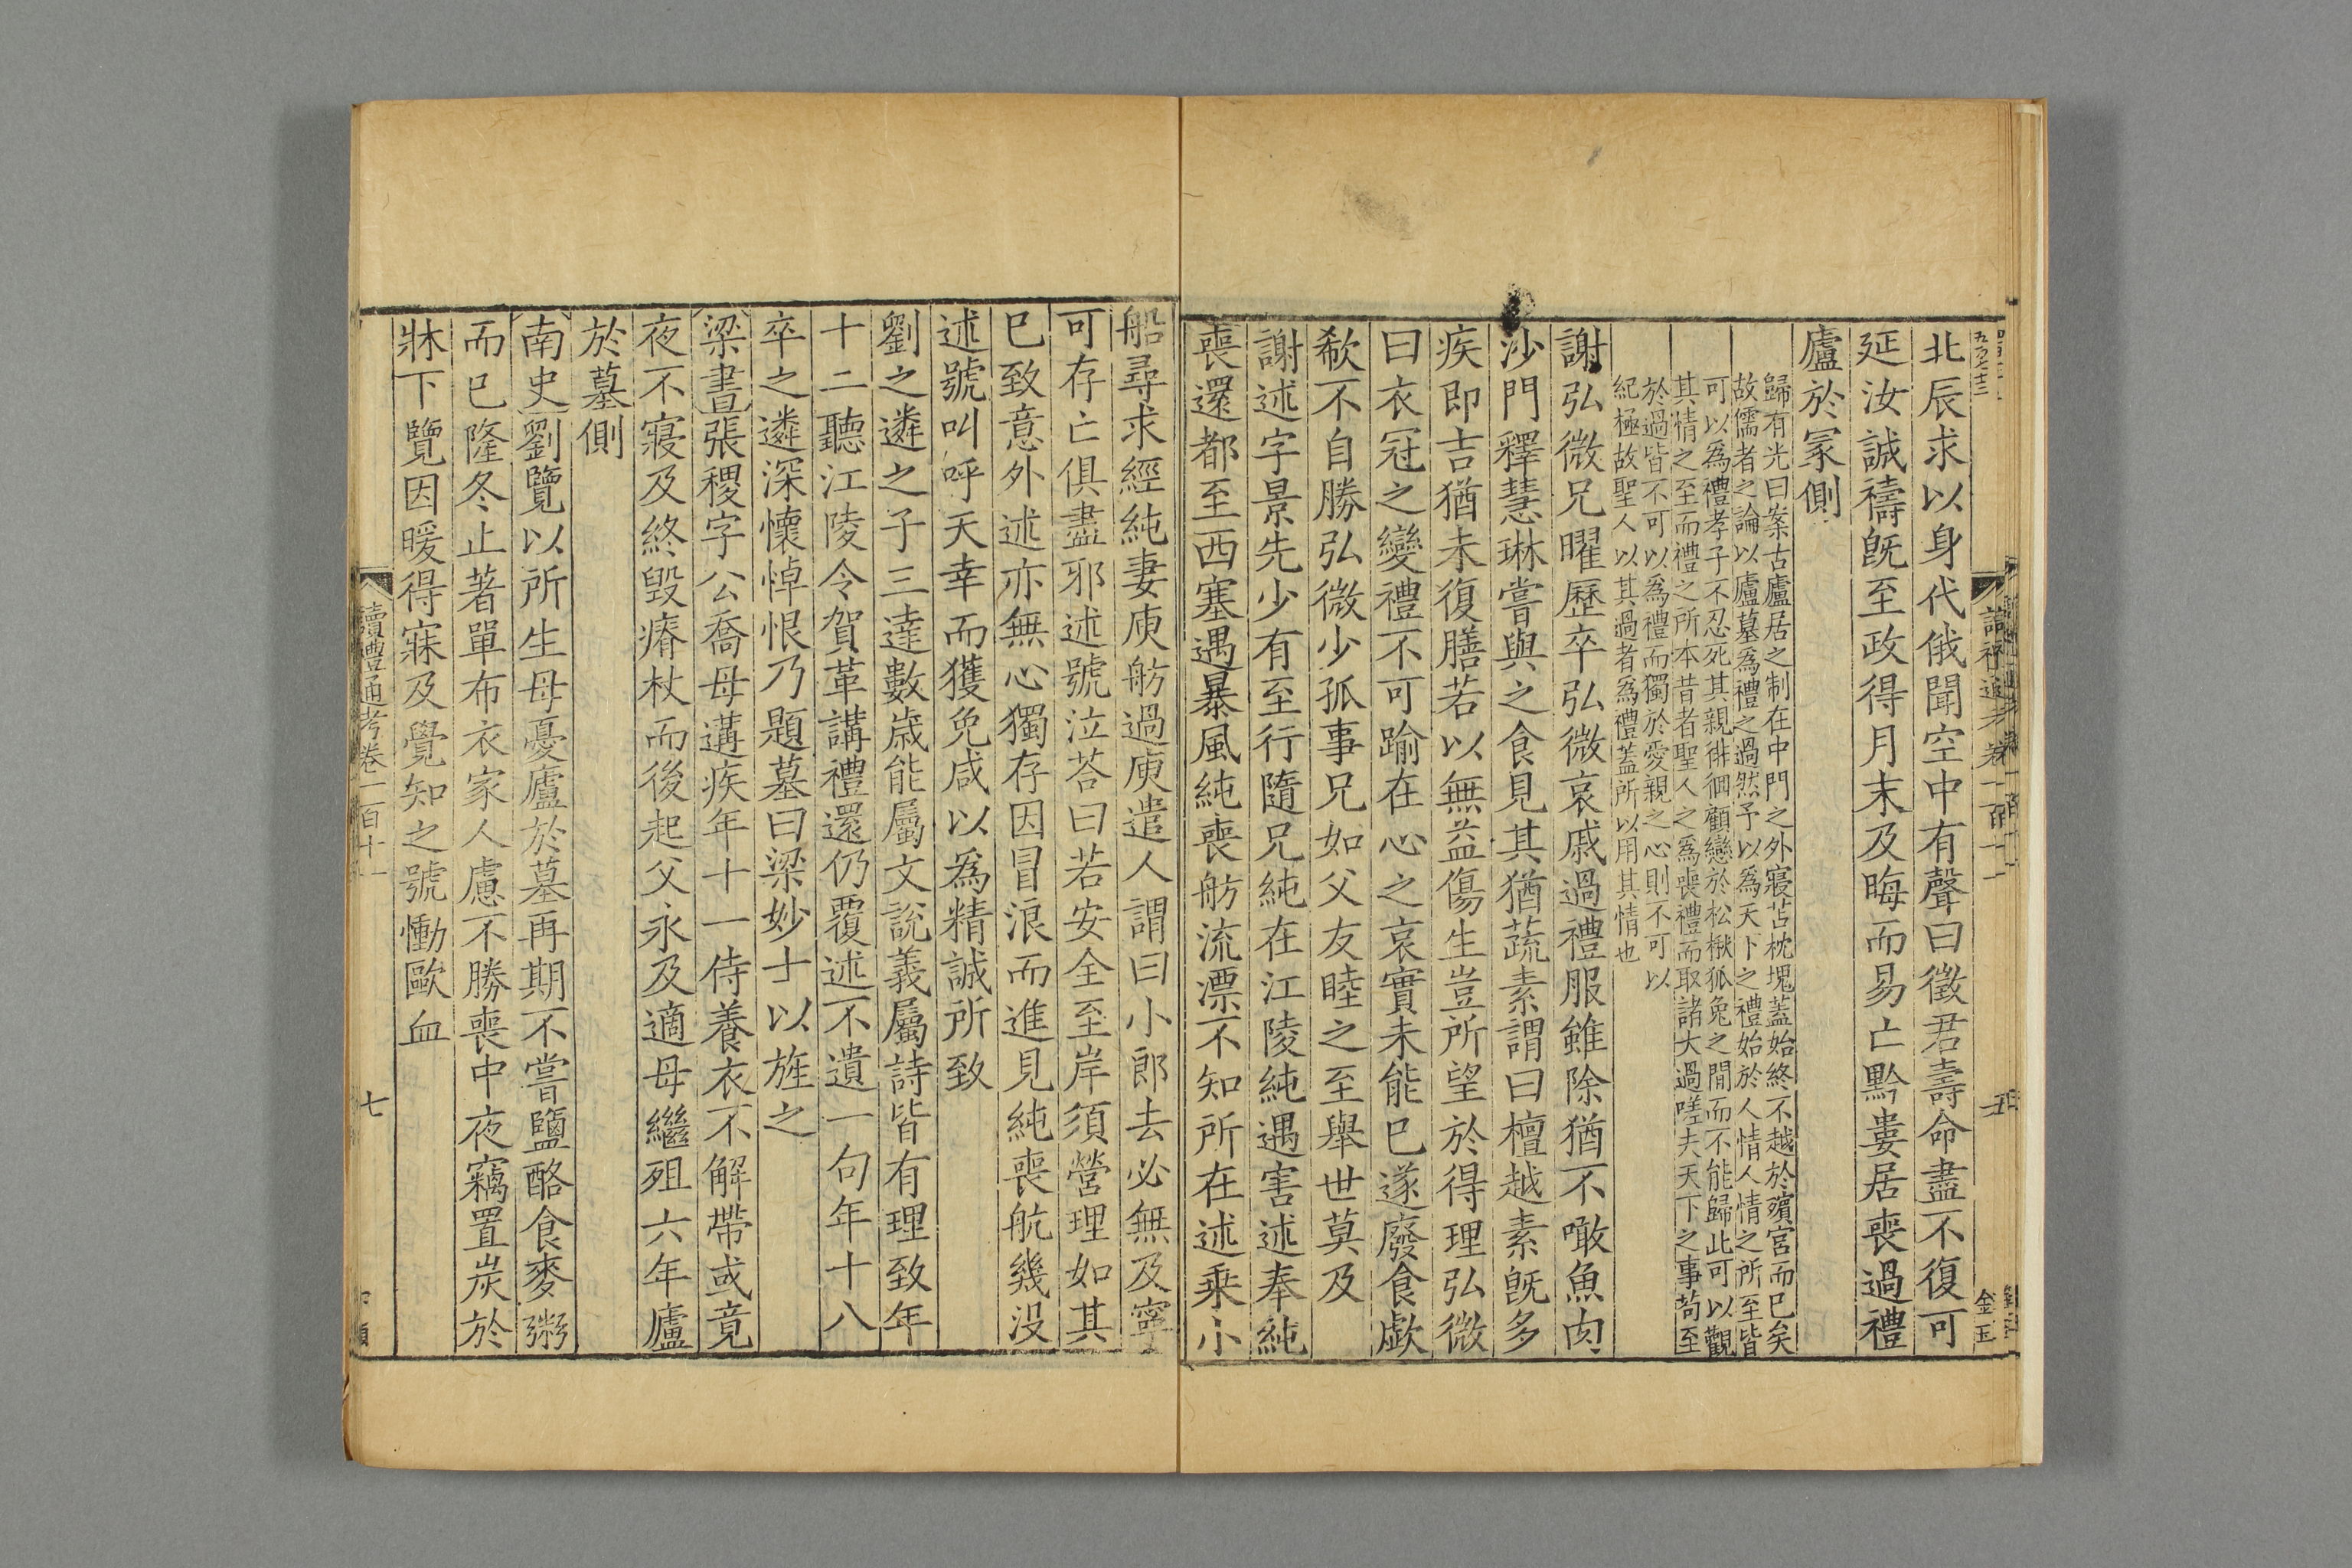 北辰求以身代俄聞空中有聲曰徵君壽命盡不復可
延汝誠禱旣至政得月末及晦而易亡黔婁居喪過禮
廬於冢側
歸有光曰案古廬居之制在中門之外寢苫枕塊蓋始終不越於殯宮而已矣
故儒者之論以廬墓爲禮之過然予以爲天下之禮始於人情人情之所至皆
可以爲禮孝子不忍死其親徘徊顧戀於松楸狐兔之間而不能歸此可以觀
其情之至而禮之所本昔者聖人之爲喪禮而取諸大過嗟夫天下之事苟至
於過皆不可以爲禮而獨於愛親之心則不可以
紀極故聖人以其過者爲禮蓋所以用其情也
謝弘微兄曜歷卒弘微哀戚過禮服雖除猶不噉魚肉
沙門釋慧琳嘗與之食見其猶蔬素謂曰檀越素旣多
疾即吉猶未復膳若以無益傷生豈所望於得理弘微
曰衣冠之變禮不可踰在心之哀實未能已遂廢食歔
欷不自勝弘微少孤事兄如父友睦之至舉世莫及
謝述字景先少有至行隨兄純在江陵純遇害述奉純
喪還都至西塞遇暴風純喪舫流漂不知所在述乘小
船尋求經純妻庾舫過庾遣人謂曰小郎去必無及寧
可存亡俱盡邪述號泣荅曰若安全至岸須營理如其
已致意外述亦無心獨存因冒浪而進見純喪航幾没
述號叫呼天幸而獲免咸以爲精誠所致
劉之遴之子三達數歲能屬文說義屬詩皆有理致年
十二聽江陵令賀革講禮還仍覆述不遺一句年十八
卒之遴深懷悼恨乃題墓曰梁妙士以旌之
梁書張稷字公喬母遘疾年十一侍養衣不解帶或竟
夜不寢及終毀瘠杖而後起父永及適母繼殂六年廬
於墓側
南史劉覽以所生母憂廬於墓再期不嘗鹽酪食麥粥
而已隆冬止著單布衣家人慮不勝喪中夜竊置炭於
牀下覽因暖得寐及覺知之號慟歐血
讀禮通考卷一百十一
七